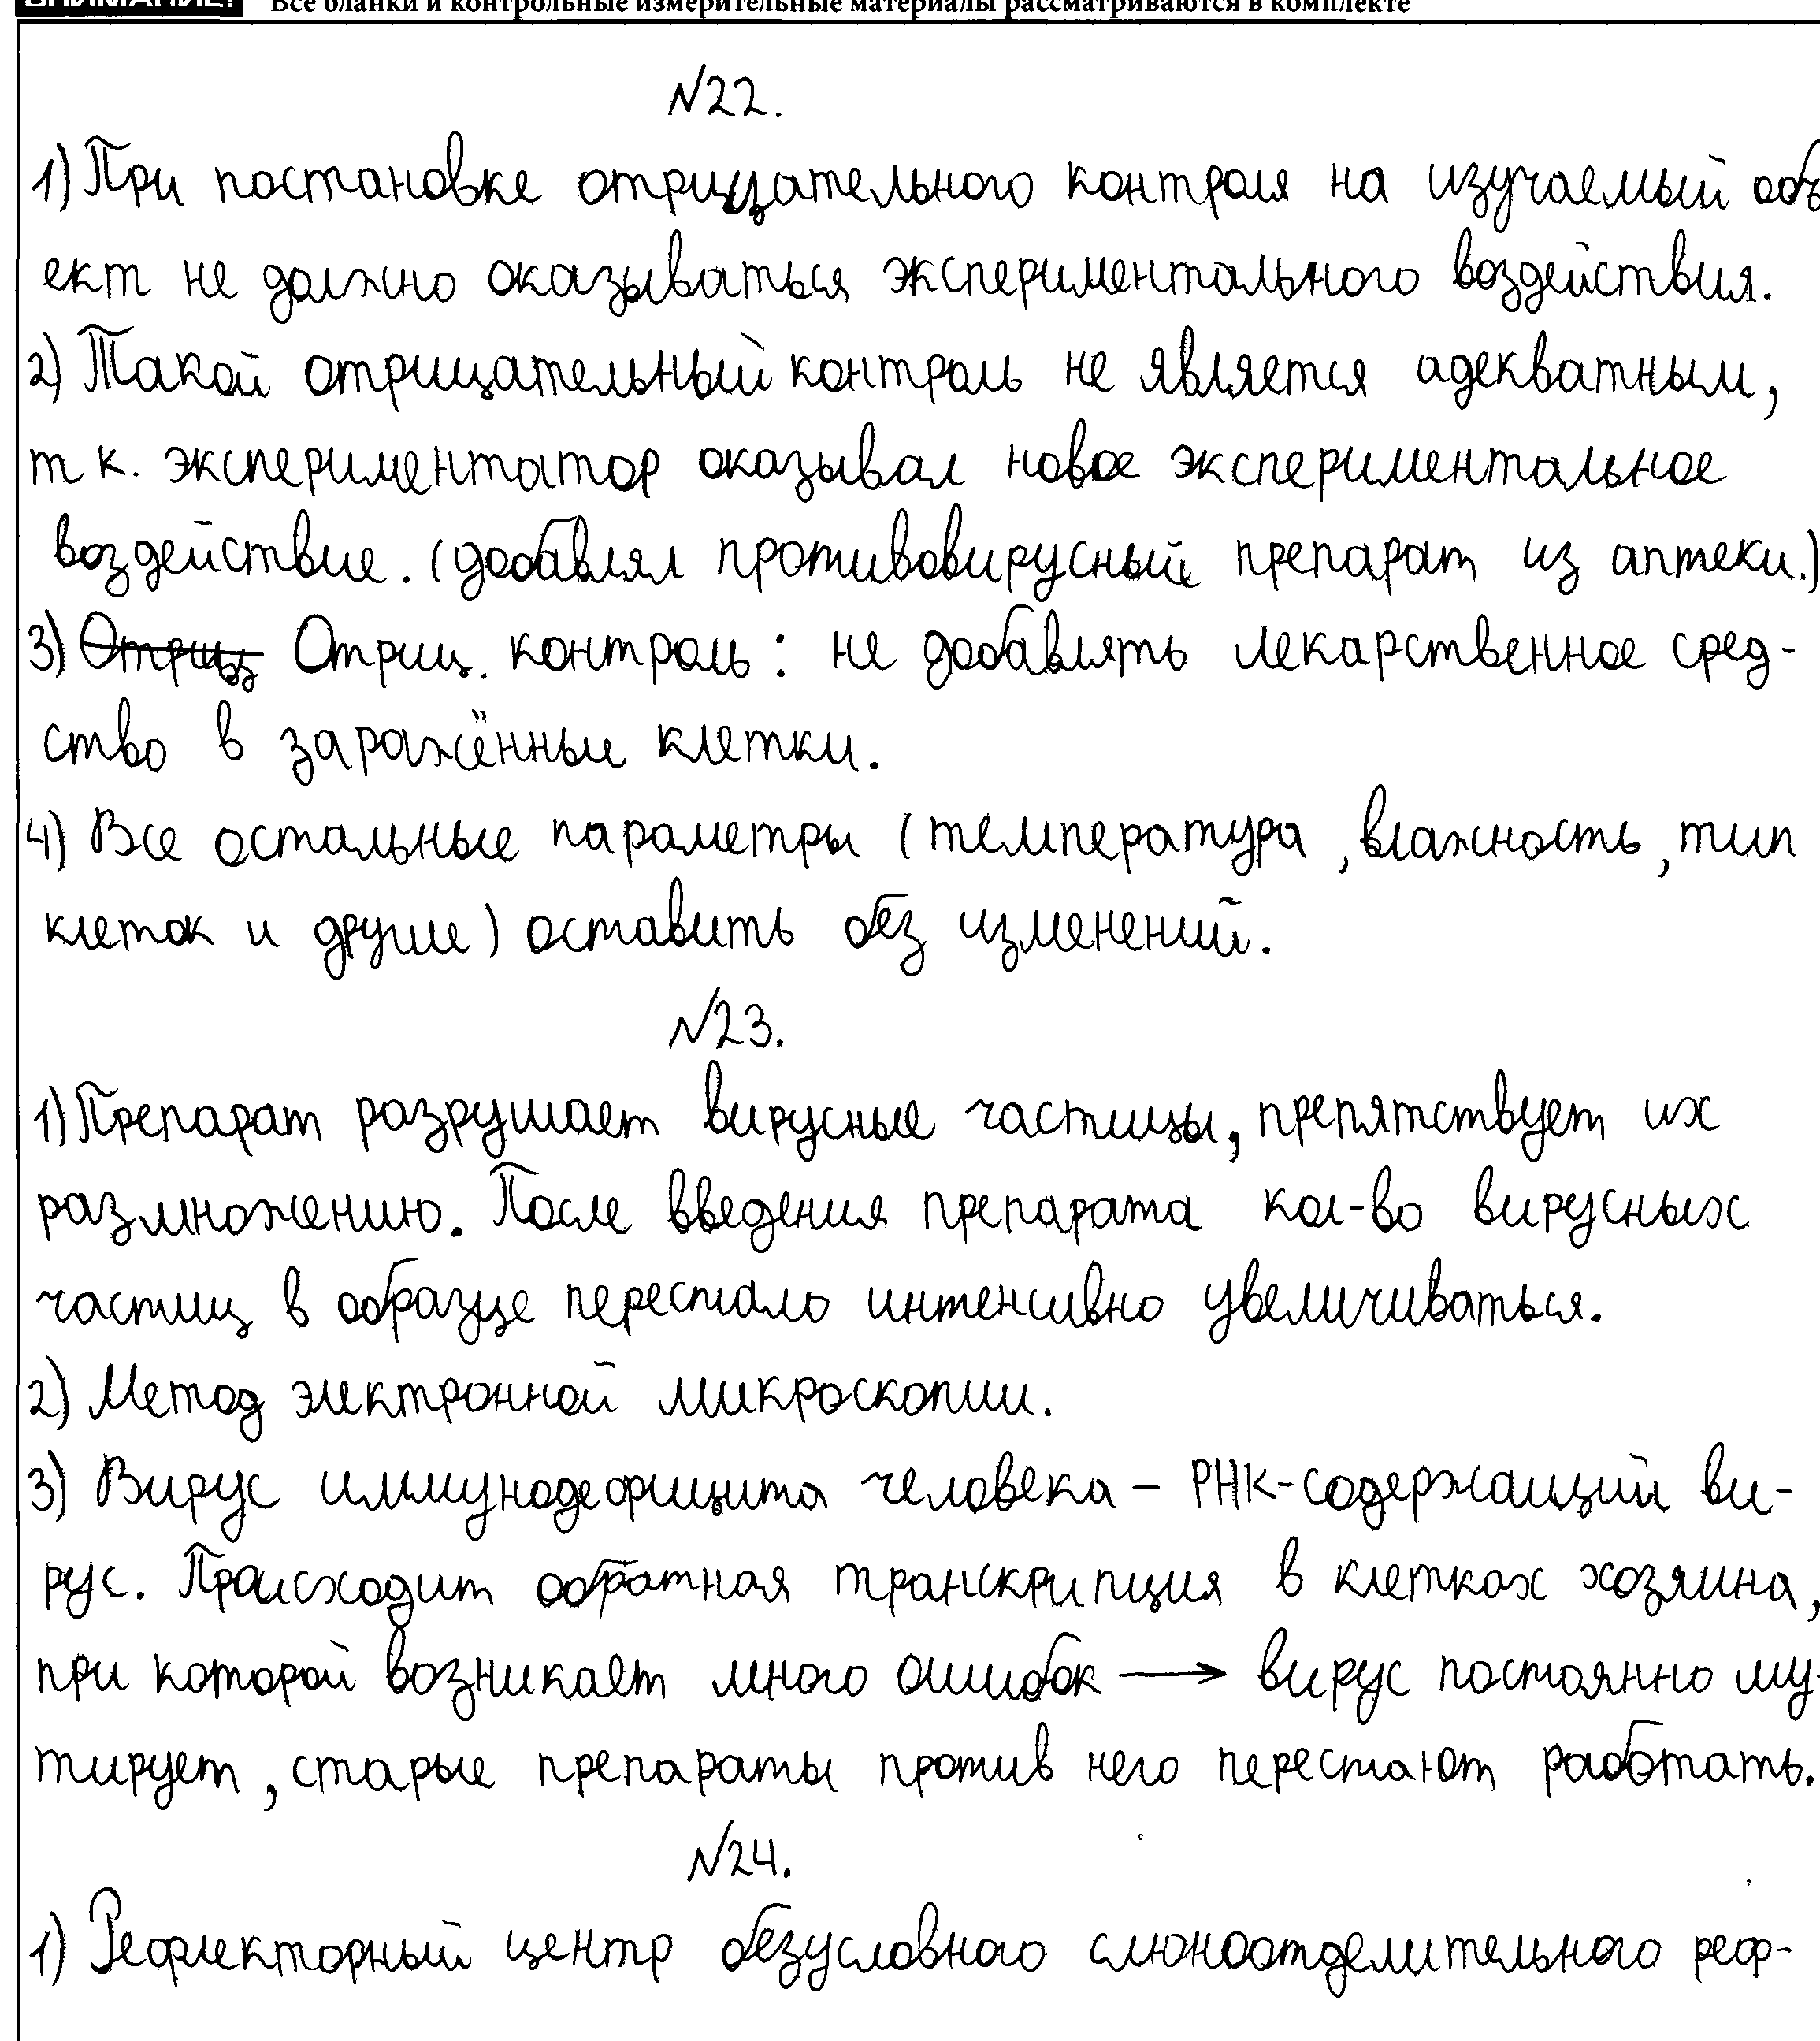 ВНИМАНИЕ! Все бланки и контрольные измерительные материалы рассматриваются в комплекте
№22.
1) При постановке отрицательного контроля на изучаемый объ
ект не должно оказываться экспериментального воздействия.
2) Такой отрицательный контроль не является адекватным,
т к. экспериментатор оказывал новое экспериментальное
воздействие. (добавлял противовирусный препарат из аптеки.)
3) Отриц Отриц. контроль: не добавлять лекарственное сред-
ство в заражённые клетки.
4) Все остальные параметры (температура, влажность, тип
клеток и другие) оставить без изменений.
№23.
1) Препарат разрушает вирусные частицы, препятствует их
размножению. После введения препарата кол-во вирусных
частиц в образце перестало интенсивно увеличиваться.
2) Метод электронной микроскопии.
3) Вирус иммунодефицита человека - РНК-содержащий ви-
рус. Происходит обратная транскрипция в клетках хозяина,
при которой возникает много ошибок → вирус постоянно му-
тирует, старые препараты против него перестают работать.
№24.
1) Рефлекторный центр безусловного слюноотделительного реф-